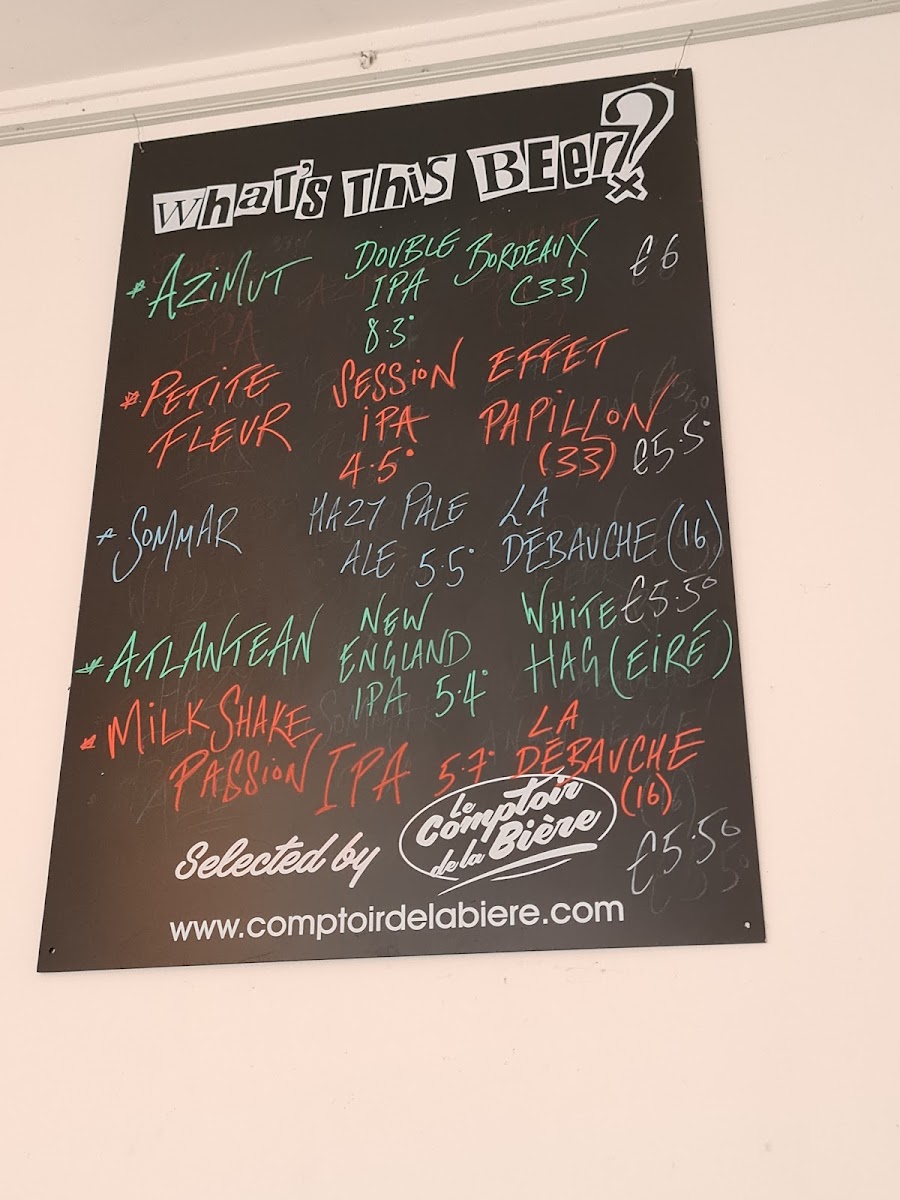 What's This Beer?
* AZIMUT DOUBLE BORDEAUX €6
IPA (33)
8.3°
* PETITE SESSION EFFET
FLEUR IPA PAPILLON
4.5° (33) €5.5°
* SOMMAR HAZY PALE LA
ALE 5.5° DÉBAUCHE (16)
€5.50
* ATLANTEAN NEW WHITE
ENGLAND HAG (EIRÉ)
IPA 5.4°
* MILKSHAKE LA
PASSION IPA 5.7° DÉBAUCHE
(16)
€5.50
Selected by Le Comptoir de la Bière
www.comptoirdelabiere.com